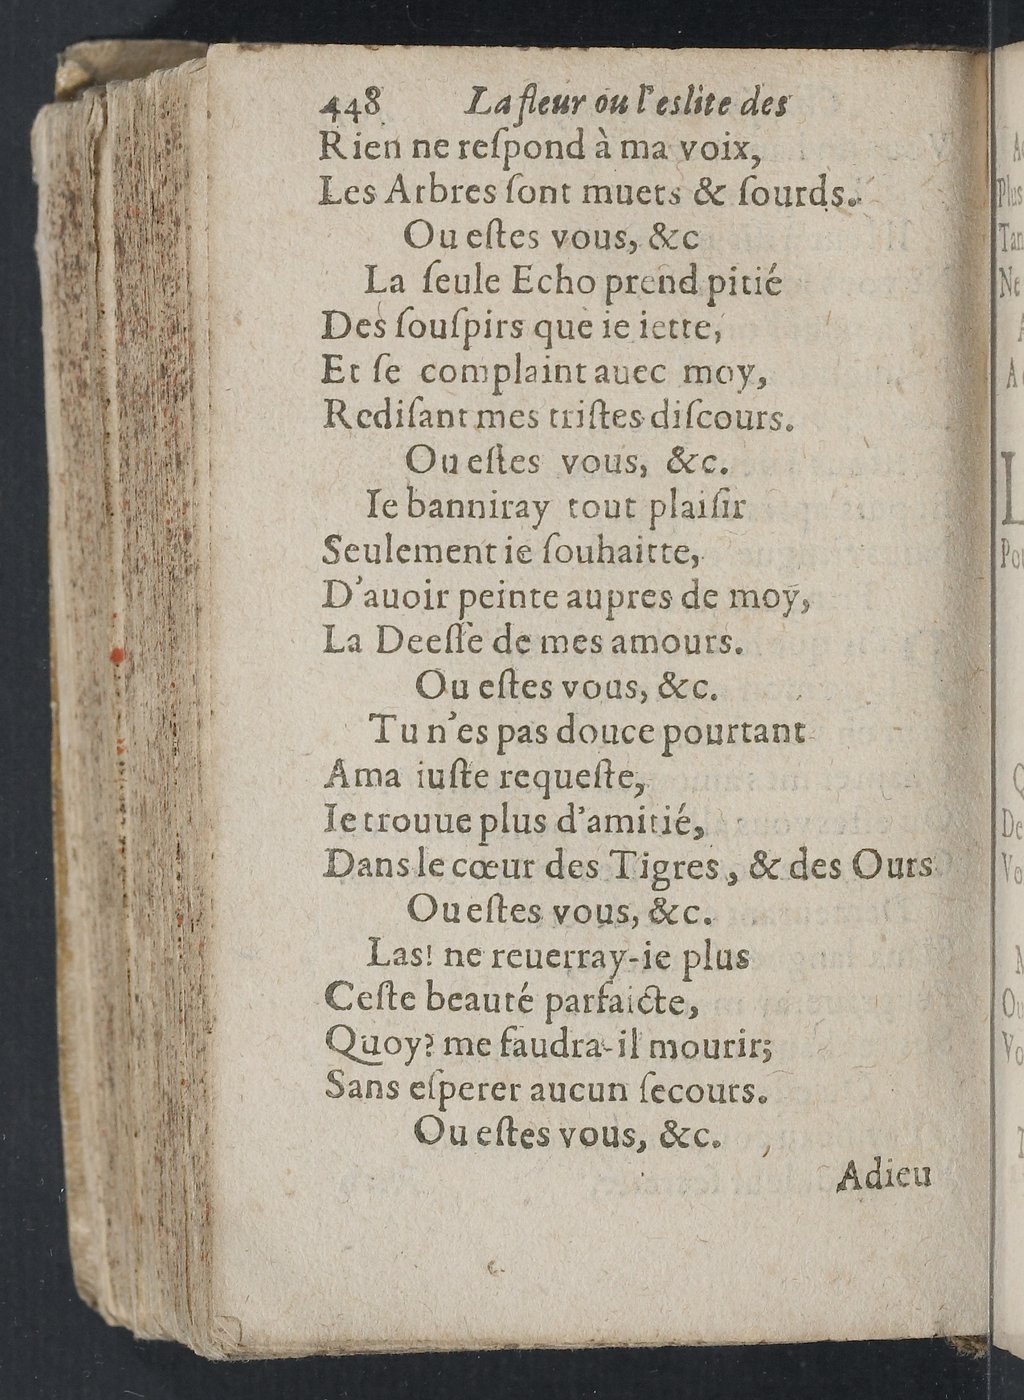 448 La fleur ou l'eslite des
Rien ne reſpond à ma voix,
Les Arbres ſont muets & ſourds.
Ou eſtes vous, &c
La ſeule Echo prend pitié
Des ſouſpirs que ie iette,
Et ſe complaint auec moy,
Rediſant mes triſtes diſcours.
Ou eſtes vous, &c.
Ie banniray tout plaiſir
Seulement ie ſouhaitte,
D'auoir peinte aupres de moy,
La Deeſſe de mes amours.
Ou eſtes vous, &c.
Tu n'es pas douce pourtant
A ma iuſte requeſte,
Ie trouue plus d'amitié,
Dans le cœur des Tigres, & des Ours
Ou eſtes vous, &c.
Las! ne reuerray-ie plus
Ceſte beauté parfaicte,
Quoy? me faudra-il mourir;
Sans eſperer aucun ſecours.
Ou eſtes vous, &c.
Adieu